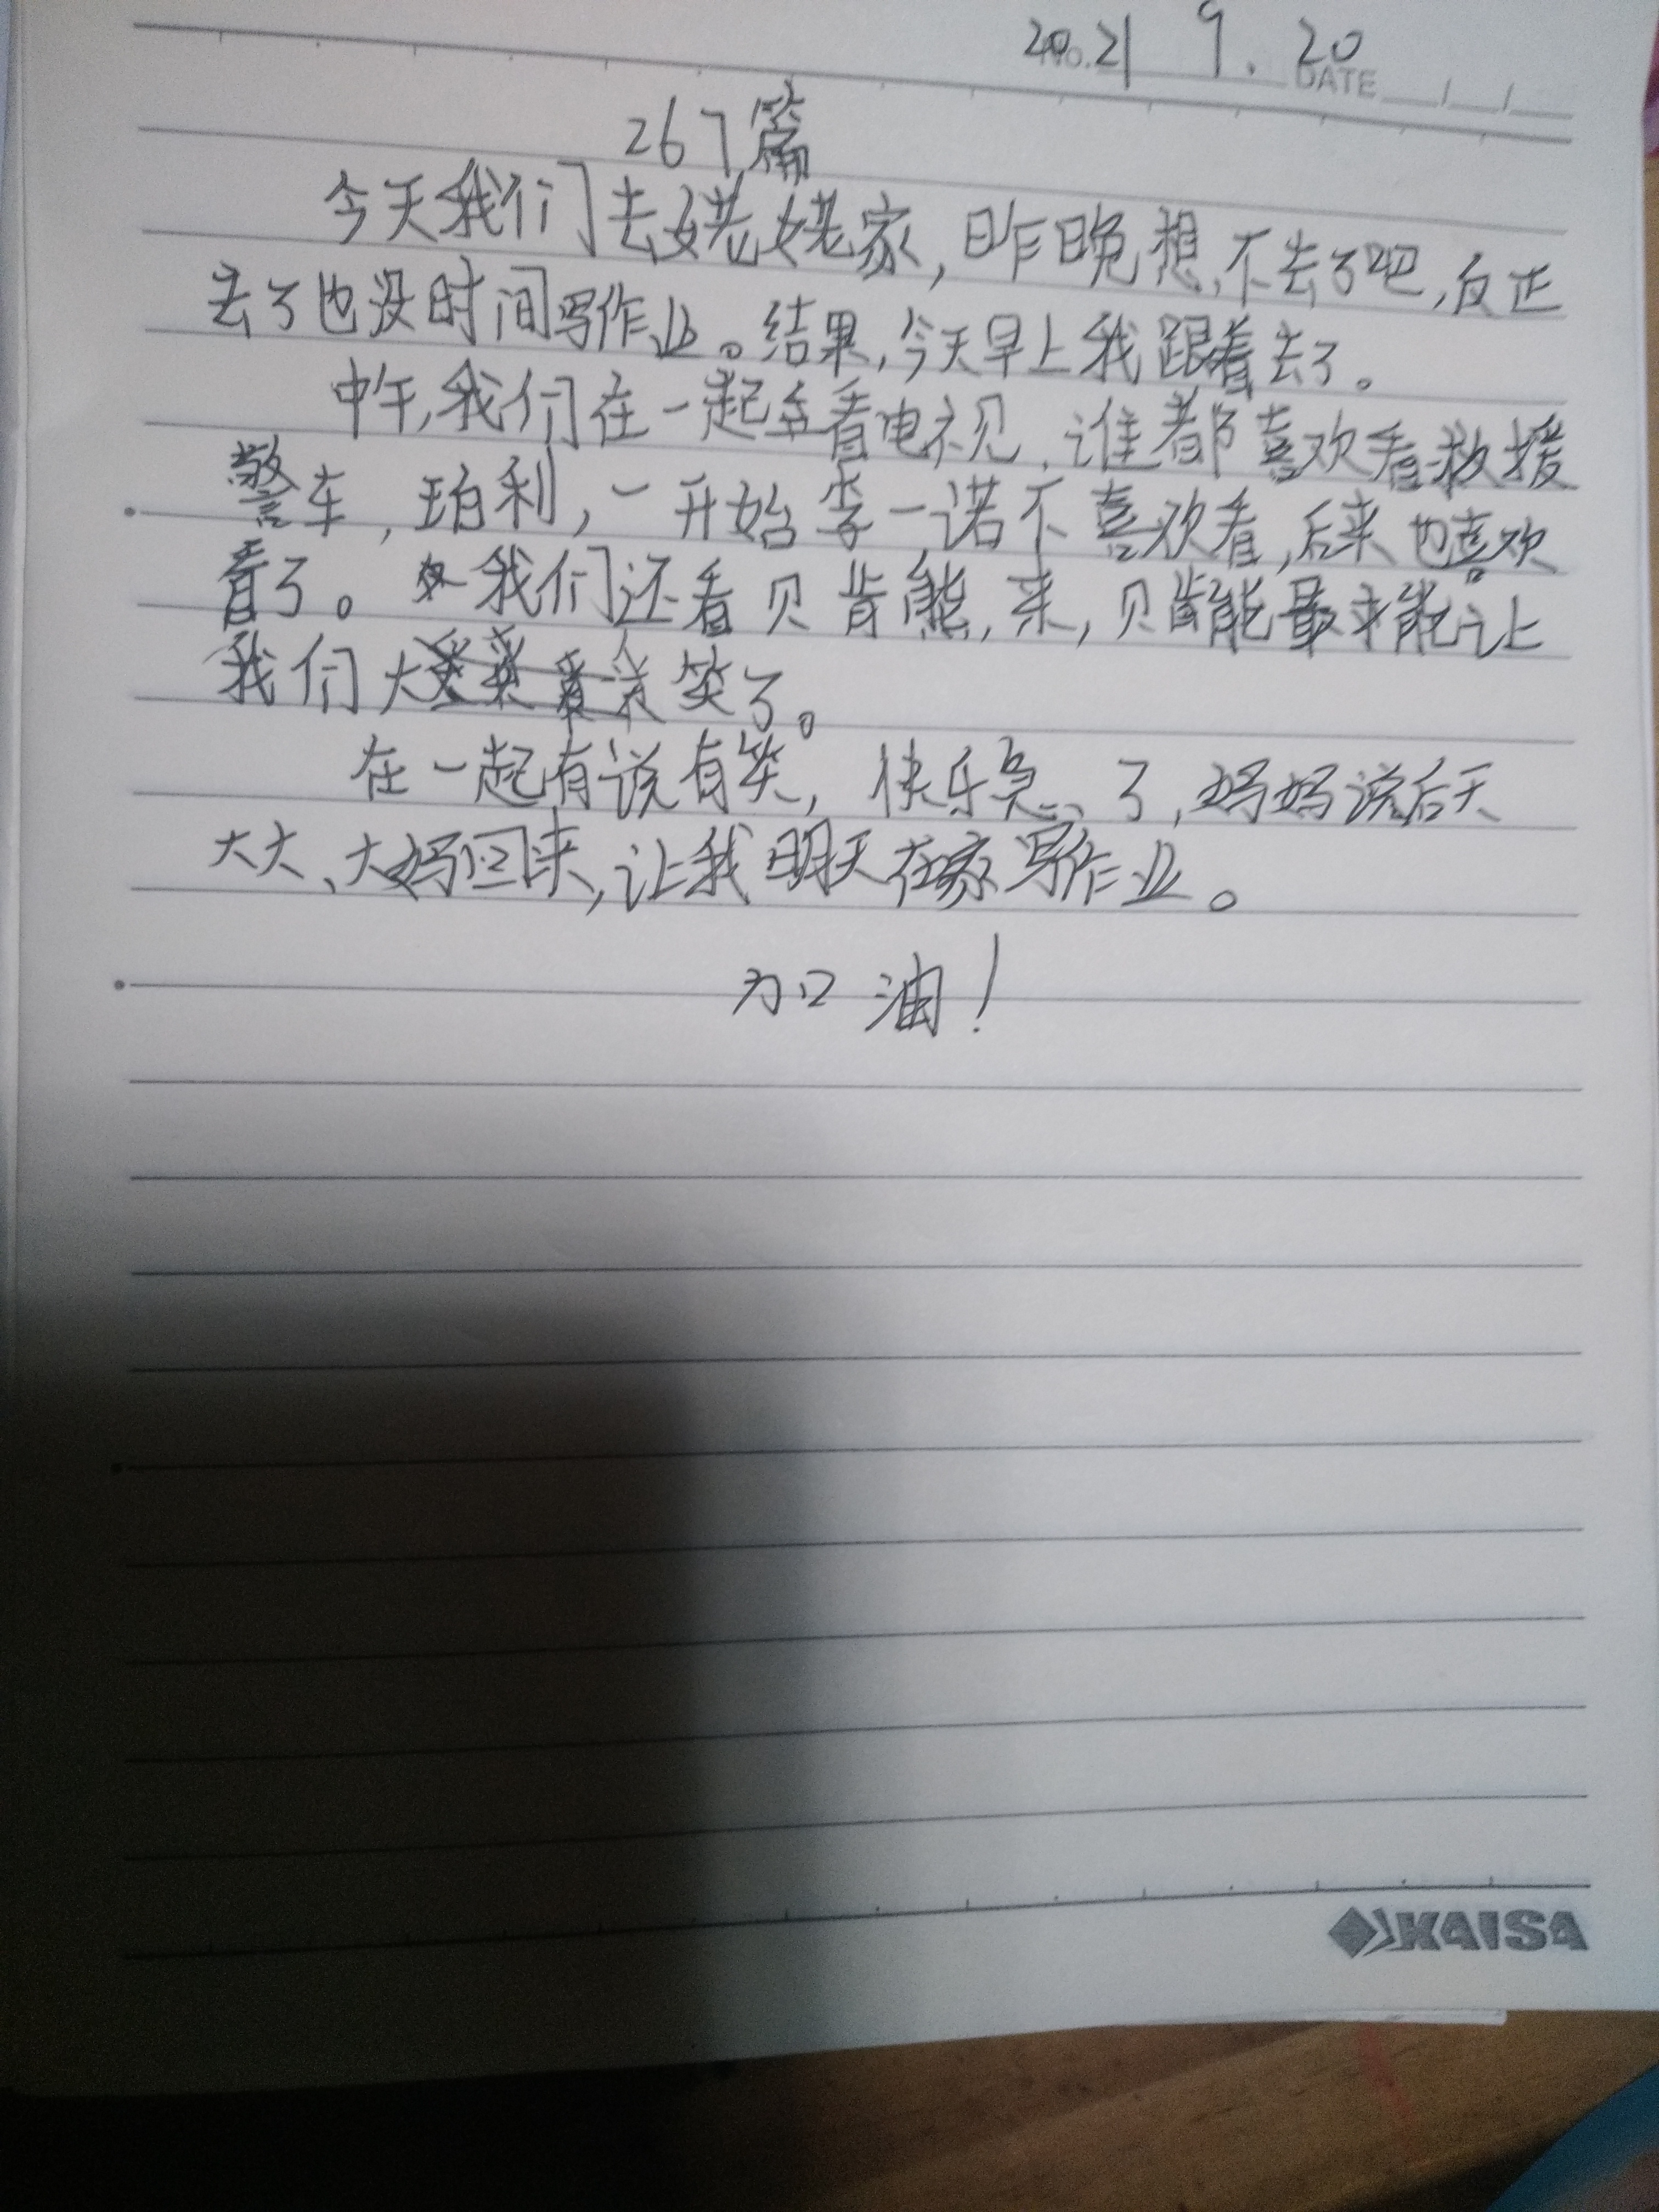 2021 9.20
No.
DATE / /
267篇
今天我们去姥姥家,昨晚想,不去了吧,反正
去了也没时间写作业。结果,今天早上我跟着去了。
中午,我们在一起看电视,谁都喜欢看救援
警车,珀利,一开始李一诺不喜欢看,后来也喜欢
看了。我们还看贝肯熊,来,贝肯能最才能让
我们大笑了。
在一起有说有笑,快乐急了,妈妈说后天
大大、大妈回来,让我明天在家写作业。
加油!
KAISA